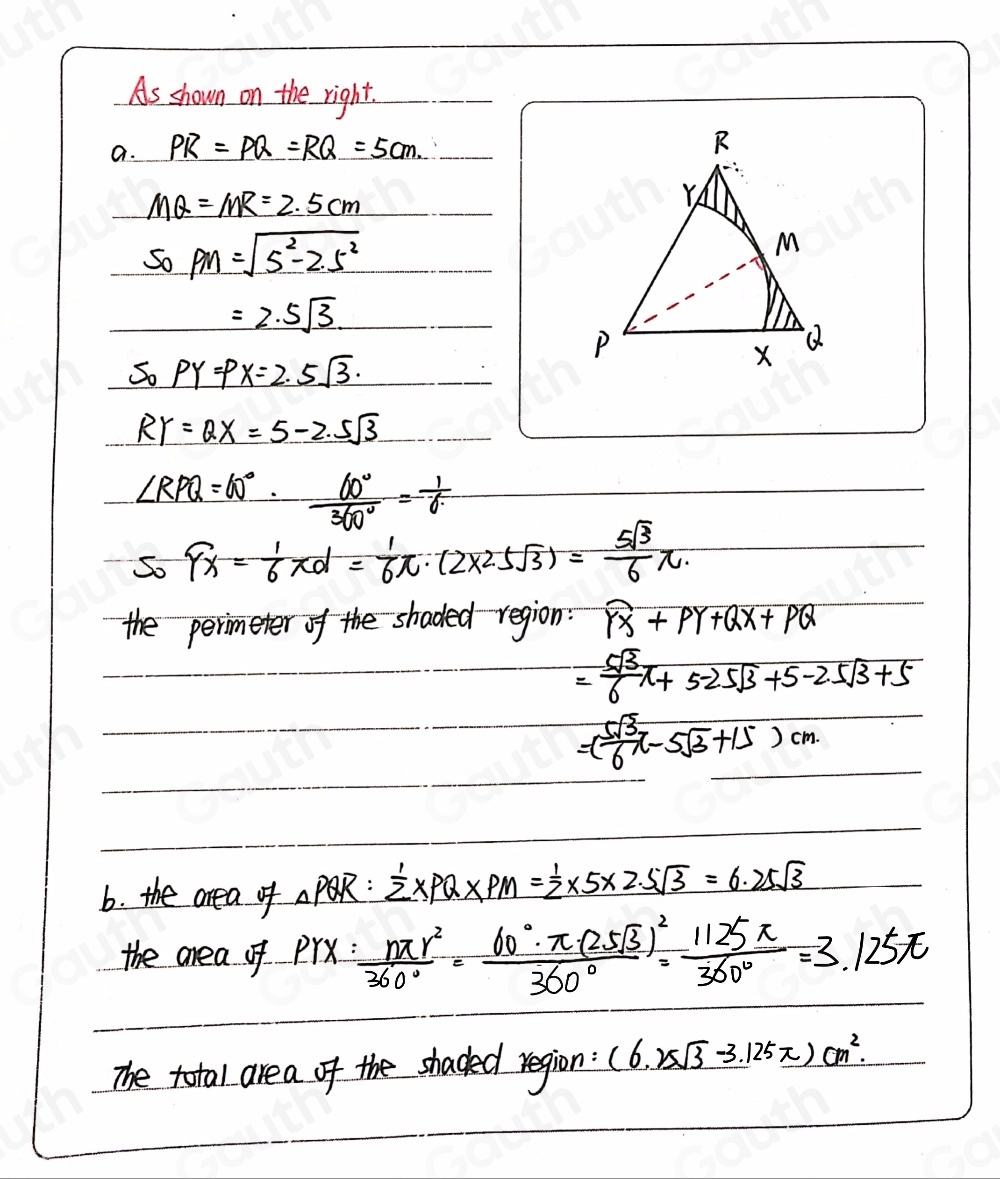 As shown on the right.
a. PR = PQ = RQ = 5cm.
MQ = MR = 2.5cm
So PM = √(5² - 2.5²)
= 2.5√3.
So PY = PX = 2.5√3.
RY = QX = 5 - 2.5√3
∠RPQ = 60°. 60°/360° = 1/6.
So YX = 1/6 πd = 1/6 π · (2×2.5√3) = 5√3/6 π.
the perimeter of the shaded region: YX + PY + QX + PQ
= 5√3/6 π + 5-2.5√3 + 5-2.5√3 + 5
= (5√3/6 π - 5√3 + 15) cm.
b. the area of △PQR: 1/2 × PQ × PM = 1/2 × 5 × 2.5√3 = 6.25√3
the area of PYX: nπr²/360° = 60° · π (2.5√3)²/360° = 1125π/360° = 3.125π
The total area of the shaded region: (6.25√3 - 3.125π) cm².
R
Y
M
P
X
Q
Gauth